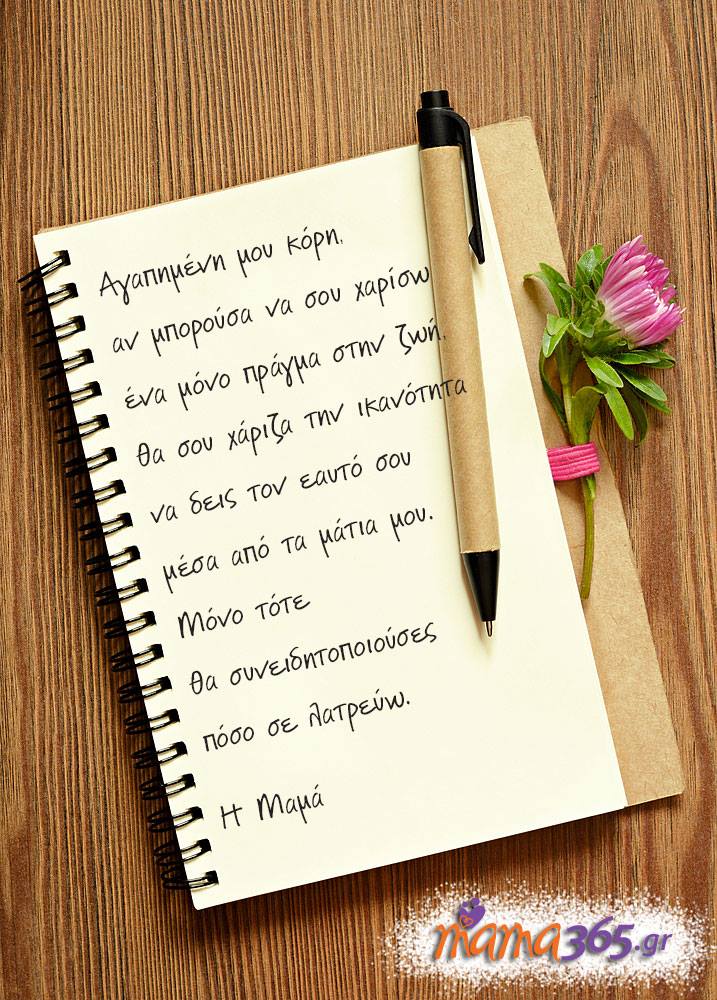 Αγαπημένη μου κόρη,
αν μπορούσα να σου χαρίσω
ένα μόνο πράγμα στην ζωή,
θα σου χάριζα την ικανότητα
να δεις τον εαυτό σου
μέσα από τα μάτια μου.
Μόνο τότε
θα συνειδητοποιούσες
πόσο σε λατρεύω.
Η Μαμά
mama365.gr